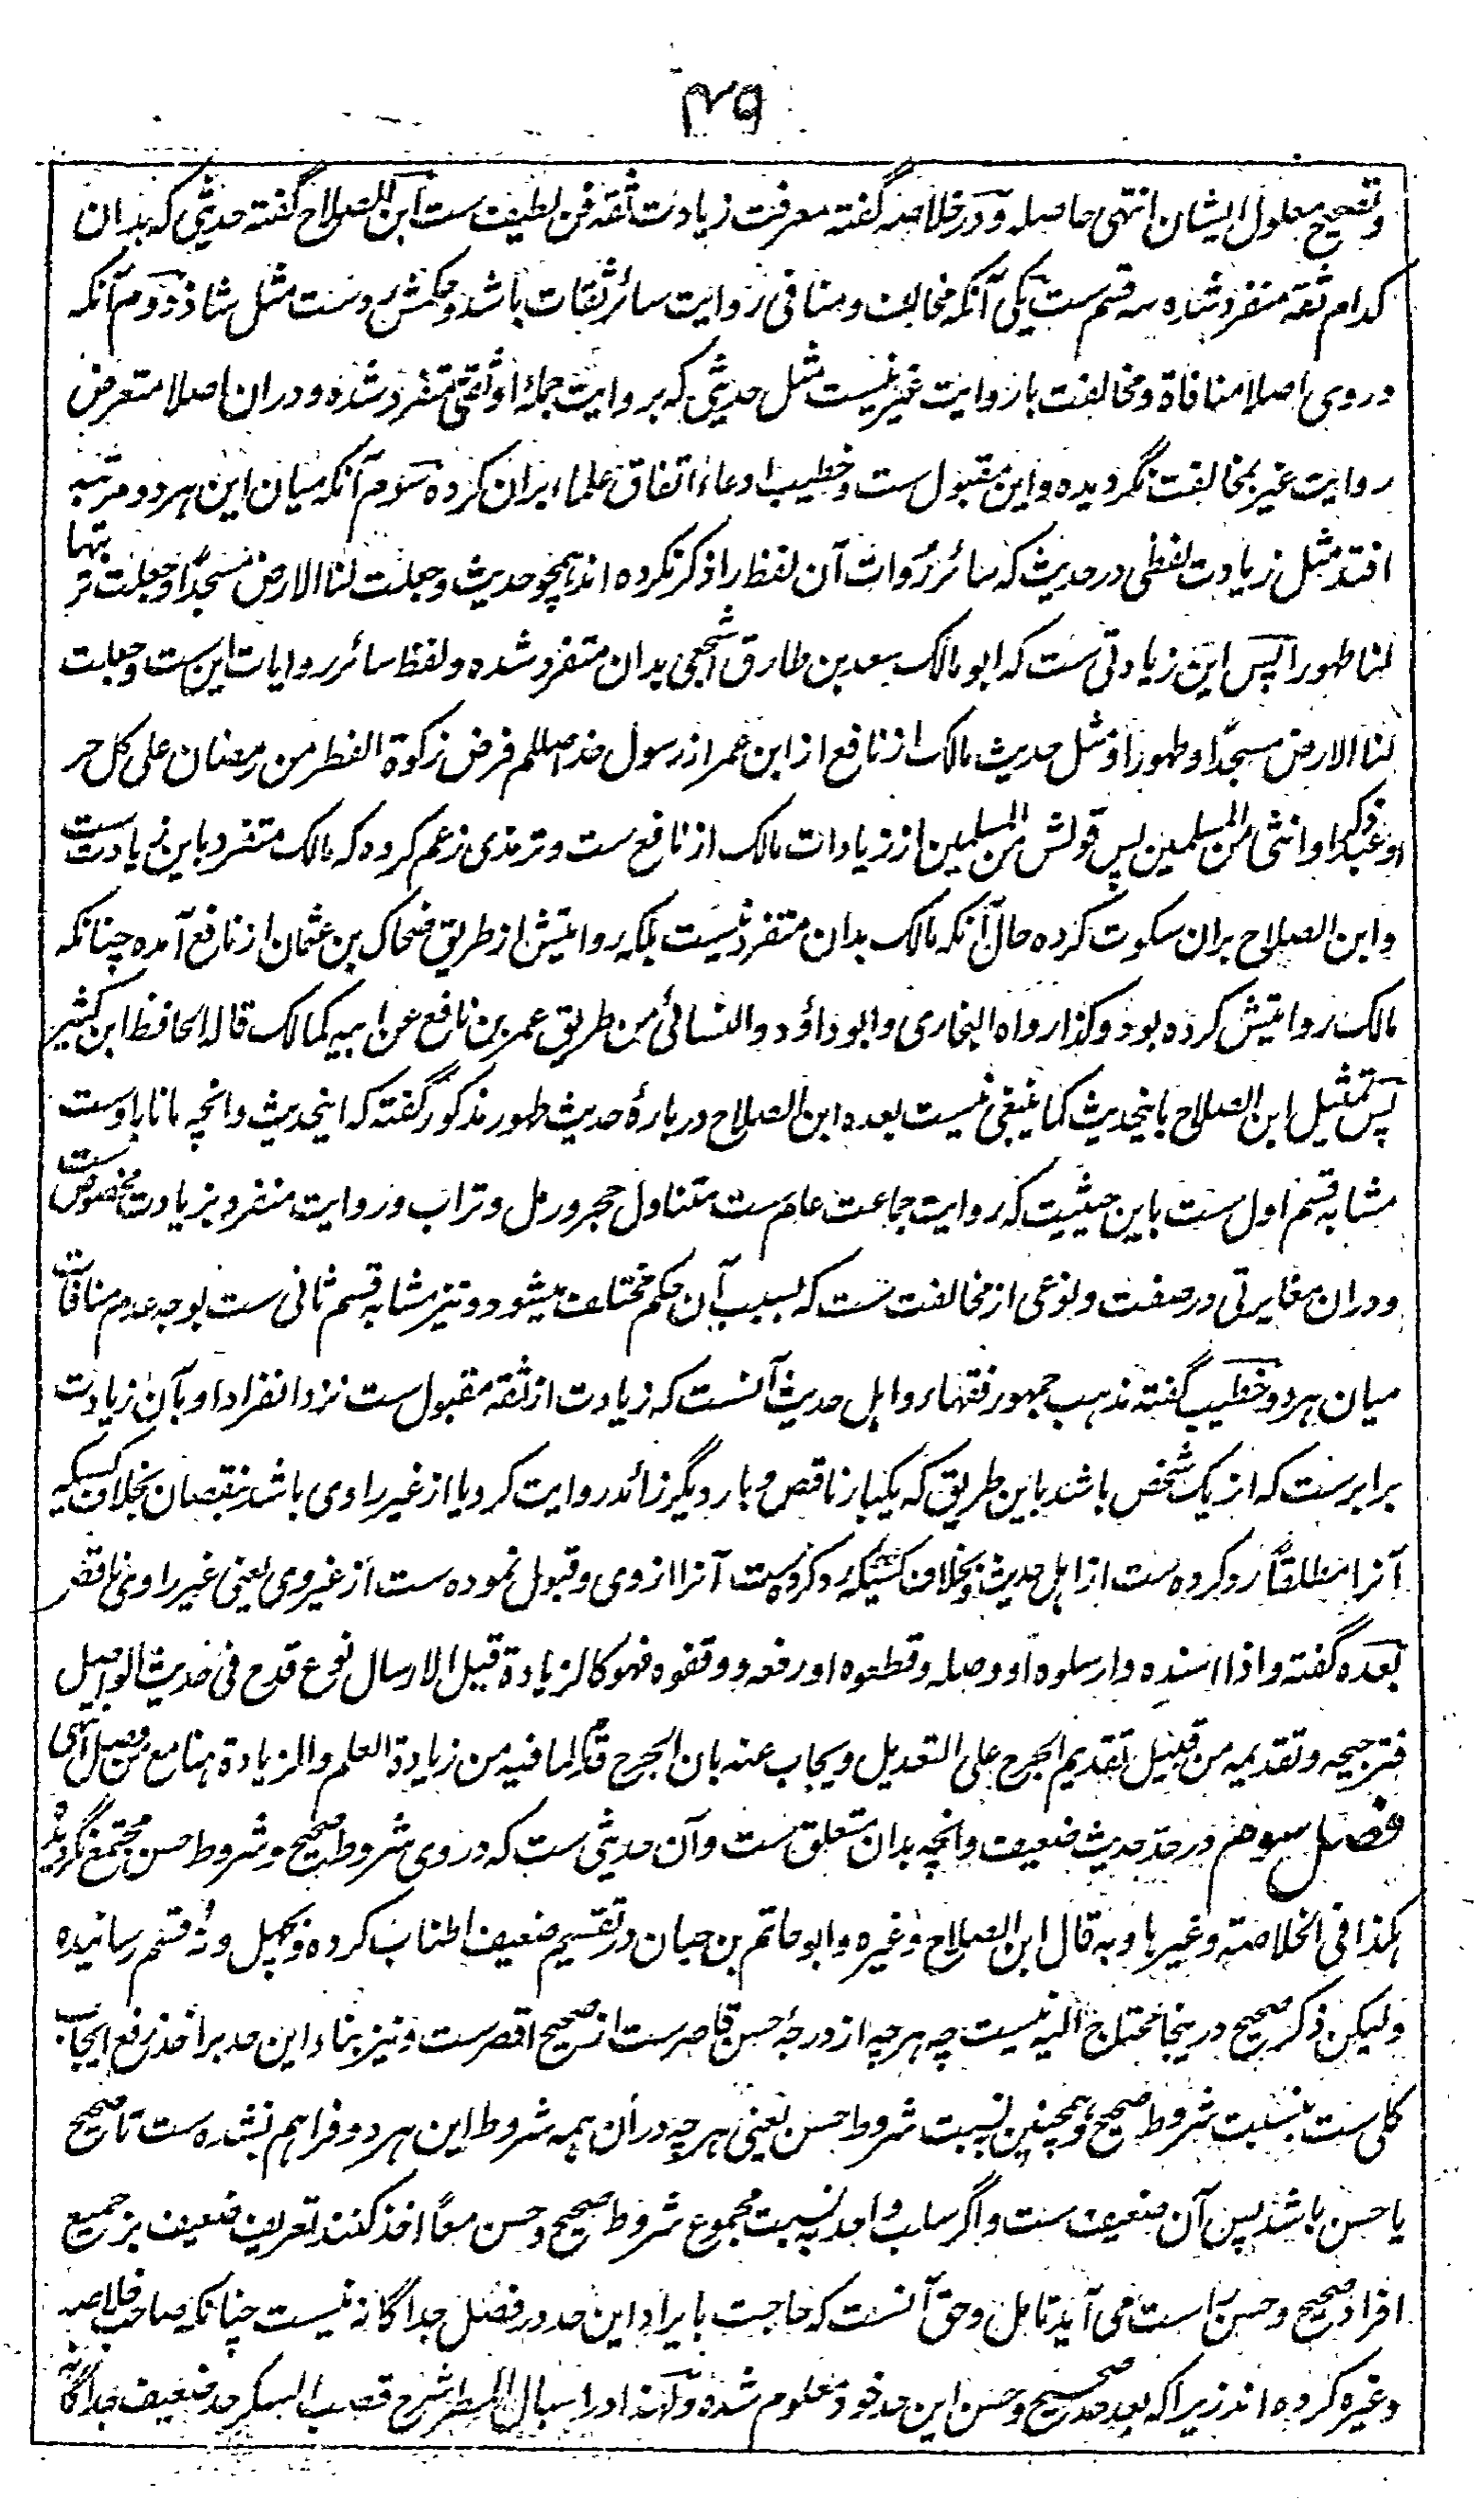 ۴۹
وتصحیح معلول ایشان انتهی حاصله و در خلاصه گفته معرفت زیادت ثقه فن لطیف ست ابن الصلاح گفته حدیثی که بدان
کدام ثقه منفرد شده سه قسم ست یکی آنکه مخالف و منافی روایت سائر ثقات باشد و حکمش رد ست مثل شاذ دوم آنکه
در وی اصلا منافاة و مخالفت با روایت غیر نیست مثل حدیثی که بروایت جملهٔ او ثقتی متفرد شده و دران اصلا متعرض
روایت غیر بمخالفت نگردیده و این مقبول ست و خطیب ادعاء اتفاق علماء بران کرده سوم آنکه میان این هر دو مرتبه
افتد مثل زیادت لفظی در حدیث که سائر روات آن لفظ را ذکر نکرده اند همچو حدیث وجعلت لنا الارض مسجداً وجعلت تربتها
لنا طهوراً پس این زیادتی ست که ابو مالک سعد بن طارق اشجعی بدان متفرد شده و لفظ سائر روایات این ست وجعلت
لنا الارض مسجداً وطهوراً و مثل حدیث مالک از نافع از ابن عمر از رسول خدا صللم فرض زکوة الفطر من رمضان علی کل حر
او عبد ذکر او انثی من المسلمین پس قولش من المسلمین از زیادات مالک از نافع ست و ترمذی زعم کرده که مالک متفرد باین زیادت ست
و ابن الصلاح بران سکوت کرده حال آنکه مالک بدان متفرد نیست بلکه روایتش از طریق ضحاک بن عثمان از نافع آمده چنانکه
مالک روایتش کرده بود و کذا رواه البخاری و ابو داؤد والنسائی من طریق عمر بن نافع عن ابیه کمالک قاله الحافظ ابن کثیر
پس تمثیل ابن الصلاح باینحدیث کما ینبغی نیست بعده ابن الصلاح دربارهٔ حدیث طهور مذکور گفته که اینحدیث و آنچه مانا باوست
مشابه قسم اول ست باین حیثیت که روایت جماعت عام ست متناول حجر و رمل و تراب و روایت منفرد بزیادت مخصوص ست
و دران مغایرتی در صفت و نوعی از مخالفت ست که بسبب آن حکم مختلف میشود و نیز مشابه قسم ثانی ست بوجه عدم منافات
میان هر دو خطیب گفته مذهب جمهور فقهاء و اهل حدیث آنست که زیادت از ثقه مقبول ست نزد انفراد او بآن زیادت
برابرست که از یک شخص باشد باین طریق که یکبار ناقص و بار دیگر زائد روایت کرد یا از غیر راوی باشد بنقصان بخلاف کسیکه
آنرا مطلقاً رد کرده ست از اهل حدیث و بخلاف کسیکه رد کرده ست آنرا از وی و قبول نموده ست از غیر وی یعنی غیر راوی ناقص
بعده گفته و اذا اسنده وارسلوه او وصله وقطعوه او رفعه ووقفوه فهو کالزیادة قیل الارسال نوع قدح فی حدیث الواصل
فترجیحه وتقدیمه من قبیل تقدیم الجرح علی التعدیل ویجاب عنه بان الجرح قدم لما فیه من زیادة العلم والزیادة هنا مع من وصل انتهی
فصل سوم در حد حدیث ضعیف و آنچه بدان متعلق ست و آن حدیثی ست که در وی شروط صحیح و شروط حسن مجتمع نگردیده
هکذا فی الخلاصة وغیرها وبه قال ابن الصلاح وغیره و ابو حاتم بن حبان در تقسیم ضعیف اطناب کرده و بچهل و نه قسم رسانیده
ولیکن ذکر صحیح درینجا محتاج الیه نیست چه هر چه از درجهٔ حسن قاصرست از صحیح اقصرست و نیز بناء این حد بر اخذ رفع ایجاب
کلی ست بنسبت شروط صحیح و همچنین بنسبت شروط حسن یعنی هر چه دران همه شروط این هر دو فراهم نشده ست تا صحیح
یا حسن باشد پس آن ضعیف ست و اگر سلب واحد بنسبت مجموع شروط صحیح و حسن معاً اخذ کنند تعریف ضعیف بر جمیع
افراد صحیح و حسن راست می آید تامل و حق آنست که حاجت بایراد این حد در فصل جداگانه نیست چنانکه صاحب خلاصه
و غیره کرده اند زیرا که بعد حد صحیح و حسن این حد خود معلوم شده و لهذا در اسبال المطر شرح قصب السکر حد ضعیف جداگانه